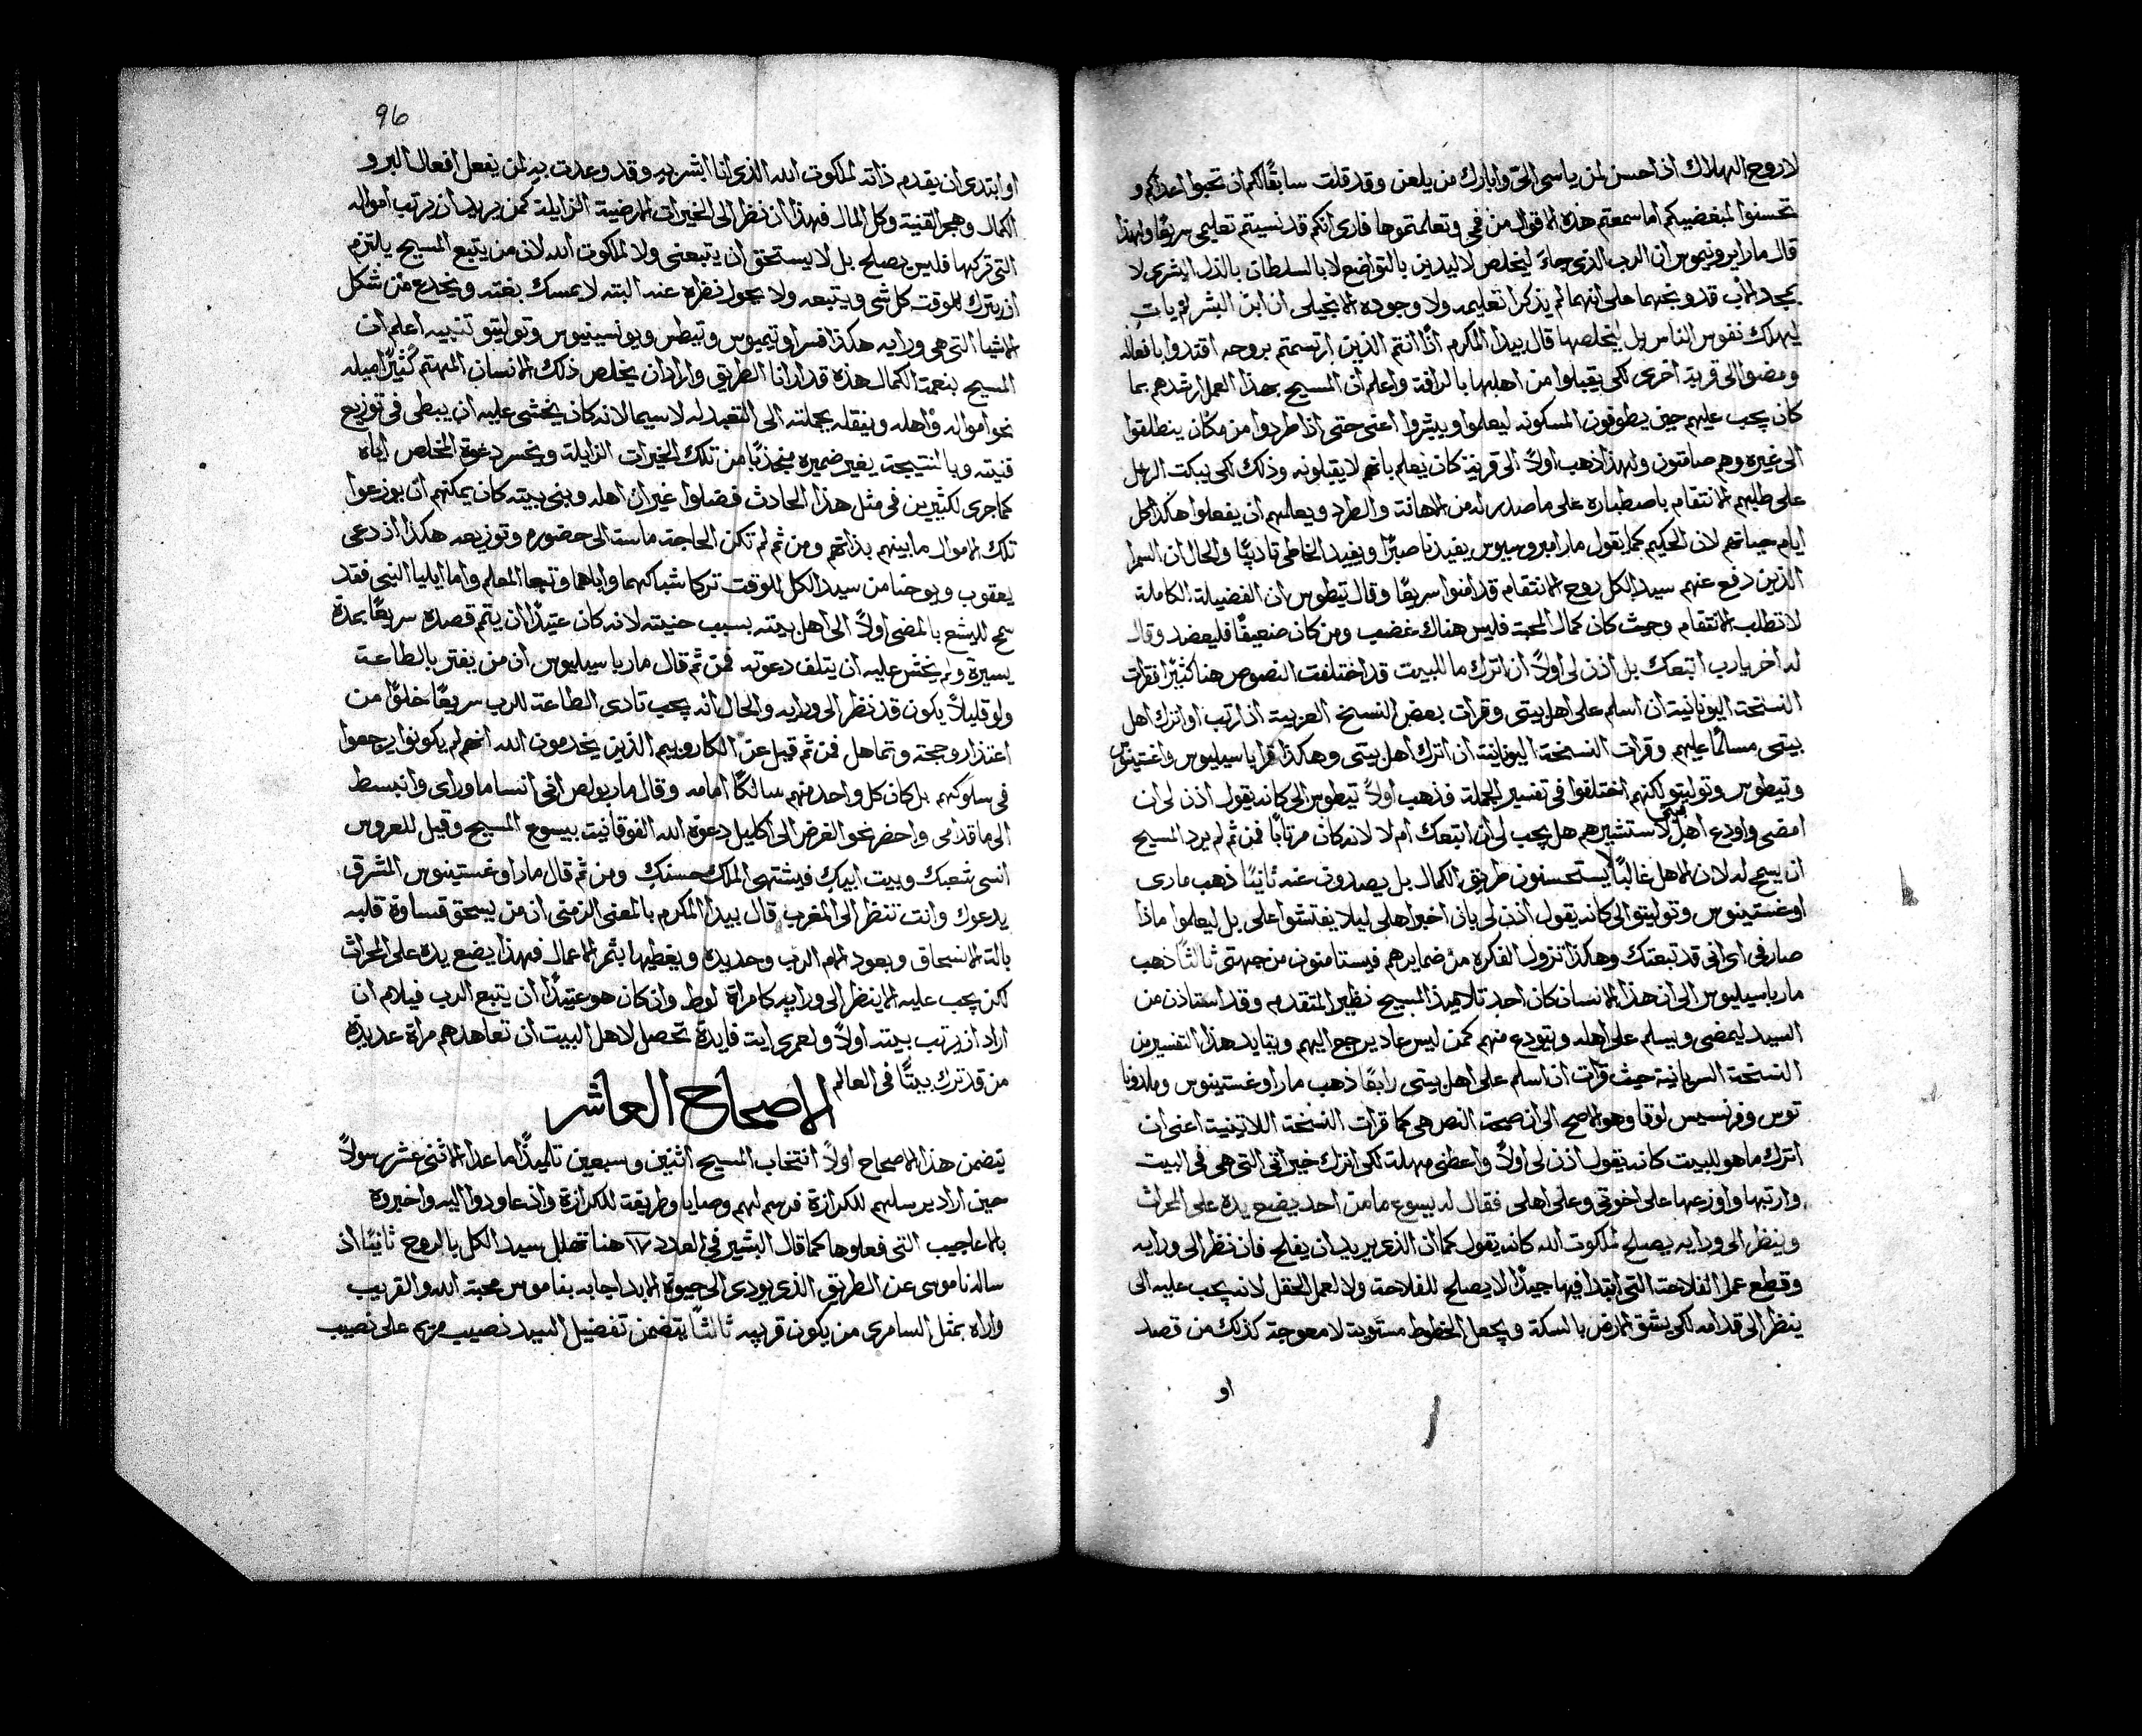 لا روح الهلاك اذ احسن لمن ياسي اليّ وابارك من يلعن وقد قلت سابقًا لكم ان تحبوا اعداكم و
تحسنوا لمبغضيكم اما سمعتم هذه الاقوال من فمي وتعلمتموها فارى انكم قد نسيتم تعليمي سريعًا ولهذا
قال مار ايرونيموس ان الرب الذي جاء ليخلص لا ليدين بالتواضع لا بالسلطان بالذل البشري لا
بمجد الاب قد وبخهما على انهما لم يذكرا تعليمه ولا وجوده الانجيلي ان ابن البشر لم يات
ليهلك نفوس الناس بل ليخلصها قال بيدا المكرم اذًا انتم الذين ارتسمتم بروحه اقتدوا بافعاله
ومضوا الى قرية اخرى لكي يقبلوا من اهلها بالرافة واعلم ان المسيح بهذا العمل ارشدهم بما
كان يجب عليهم حين يطوفون المسكونه ليعلموا ويبشروا اعني حتى اذا طردوا من مكان ينطلقوا
الى غيره وهم صامتون ولهذا ذهب اولًا الى قرية كان يعلم بانهم لا يقبلونه وذلك لكي يبكت الرسل
على طلبهم الانتقام باصطباره على ما صدر له من الاهانة والطرد ويعلمهم ان يفعلوا هكذا كل
ايام حياتهم لان الحكيم كما يقول مار امبروسيوس يفيدنا صبرًا ويفيد الخاطي تاديبًا والحال ان السمرا
الذين دفع عنهم سيد الكل روح الانتقام قد امنوا سريعًا وقال تيطوس ان الفضيلة الكاملة
لا تطلب الانتقام وحيث كان كمال المحبة فليس هناك غضب ومن كان ضعيفًا فليعضد وقال
له اخر يا رب اتبعك بل اذن لي اولًا ان اترك ما للبيت قد اختلفت النصوص هنا كثيرًا فقرات
النسخة اليونانية ان اسلم على اهل بيتي وقرات بعض النسخ العربية ان ارتب او اترك اهل
بيتي مسلمًا عليهم وقرات النسخة اليونانية ان اترك اهل بيتي وهكذا قرا باسيليوس واغستينوس
وتيطوس وتوليتو لكنهم اختلفوا في تفسير الجملة فذهب اولًا تيطوس الى كانه يقول اذن لي ان
امضي واودع اهل بيتي لاستشيرهم هل يجب لي ان اتبعك ام لا لانه كان مرتابًا فمن ثم لم يرد المسيح
ان يسمح له لان الاهل غالبًا لا يستحسنون طريق الكمال بل يصدون عنه ثانيًا ذهب ماري
اوغستينوس وتوليتو الى كانه يقول اذن لي بان اخبر اهلي ليلا يفتشوا علي بل ليعلموا ماذا
صار في اي اني قد تبعتك وهكذا تزول الفكرة من ضمايرهم فيستامنون من جهتي ثالثًا ذهب
مار باسيليوس الى ان هذا الانسان كان احد تلاميذ المسيح نظير المتقدم وقد استاذن من
السيد ليمضي ويسلم على اهله ويتودع منهم كمن ليس عاد يرجع اليهم ويتايد هذا التفسير من
النسخة السريانية حيث قرات ان اسلم على اهل بيتي رابعًا ذهب مار اوغستينوس وملدونا
توس وفرنسيس لوقا وهو الاصح الى ان صحة النص هي كما قرات النسخة اللاتينية اعني ان
اترك ما هو للبيت كانه يقول اذن لي اولًا واعطني مهلة لكي اترك خيراتي التي هي في البيت
وارتبها واوزعها على اخوتي وعلى اهلي فقال له يسوع ما من احد يضع يده على المحراث
وينظر الى ورايه يصلح لملكوت الله كانه يقول كما ان الذي يريد ان يفلح فان نظر الى ورايه
وقطع عمل الفلاحة التي ابتدا فيها جيدًا لا يصلح للفلاحة ولا لعمل الحقل لانه يجب عليه الى
ينظر الى قدامه لكي يشق الارض بالسكة ويجعل الخطوط مستوية لا معوجة كذلك من قصد
او
96
او ابتدى ان يقدم ذاته لملكوت الله الذي انا ابشر به وقد وعدت به لمن يفعل افعال البر و
الكمال وهجر القنية وكل المال فهذا ان نظر الى الخيرات الارضية الزايلة كمن يريد ان يرتب امواله
التي تركها فليس يصلح بل لا يستحق ان يتبعني ولا لملكوت الله لان من يتبع المسيح يالتزم
ان يترك للوقت كل شي ويتبعه ولا يحول نظره عنه البته لا يمسك بغته ويخدع من شكل
الاشيا التي هي ورايه هكذا فسر اوتيميوس وتيطس ويونسينيوس وتوليتو تنبيه اعلم ان
المسيح بنعمة الكمال هذه قد ارانا الطريق واراد ان يخلص ذلك الانسان المهتم كثيرًا ميله
نحو امواله واهله وينقله بجملته الى التعبد له لا سيما لانه كان يخشى عليه ان يبطي في توزيع
قنيته وبالنتيجة يغير ضميره منجذبًا من تلك الخيرات الزايلة ويخسر دعوة المخلص اياه
كما جرى لكثيرين في مثل هذا الحادث فضلوا غير ان اهله وبني بيته كان يمكنهم ان يوزعوا
تلك الاموال ما بينهم بذاتهم ومن ثم لم تكن الحاجة ماسة الى حضوره وتوزيعه هكذا اذ دعى
يعقوب ويوحنا من سيد الكل للوقت تركا شباكهما واباهما وتبعا المعلم واما ايليا النبي فقد
سمح لليشع بالمضي اولًا الى اهل بيته بسبب حنيته لانه كان عتيدًا ان يتم قصده سريعًا بمدة
يسيرة ولم يخش عليه ان يتلف دعوته فمن ثم قال مار باسيليوس ان من يفتر بالطاعة
ولو قليلًا يكون قد نظر الى ورايه والحال انه يجب تادي الطاعة للرب سريعًا خلوًا من
اعتذار وحجة وتماهل فمن ثم قيل عن الكاروبيم الذين يخدمون الله انهم لم يكونوا يرجعوا
في سلوكهم بل كان كل واحد منهم سالكًا امامه وقال مار بولص اني انسا ما وراي وانبسط
الى ما قدامي واحضر نحو الغرض الى اكليل دعوة الله الفوقانية بيسوع المسيح وقيل للعروس
انسى شعبك وبيت ابيك فيشتهي الملك حسنك ومن ثم قال مار اوغستينوس المشرق
يدعوك وانت تنظر الى المغرب قال بيدا المكرم بالمعنى الزمني ان من يسحق قساوة قلبه
بالة الانسحاق وبعود الام الرب وحديده ويغطيها بثمر الاعمال فهذا يضع يده على المحراث
لكن يجب عليه الا ينظر الى ورايه كامراة لوط وان كان هو عتيدًا ان يتبع الرب فيلام ان
اراد ان يرتب بيته اولًا ولعمري اية فايدة تحصل لاهل البيت ان تعاهدهم مراة عديدة
من قد ترك بيتًا في العالم
الاصحاح العاشر
يتضمن هذا الاصحاح اولًا انتخاب المسيح اثنين وسبعين تلميذًا ما عدا الاثني عشر رسولًا
حين اراد يرسلهم للكرازة فرسم لهم وصايا وطريقة للكرازة واذ عاودوا اليه واخبروه
بالاعاجيب التي فعلوها كما قال البشير في العدد ١٧ هنا تهلل سيد الكل بالروح ثانيًا اذ
ساله ناموسى عن الطريق الذي يودي الى حيوة الابد اجابه بناموس محبة الله والقريب
واراه بمثل السامري من يكون قريبه ثالثًا يتضمن تفضيل السيد نصيب مريم على نصيب